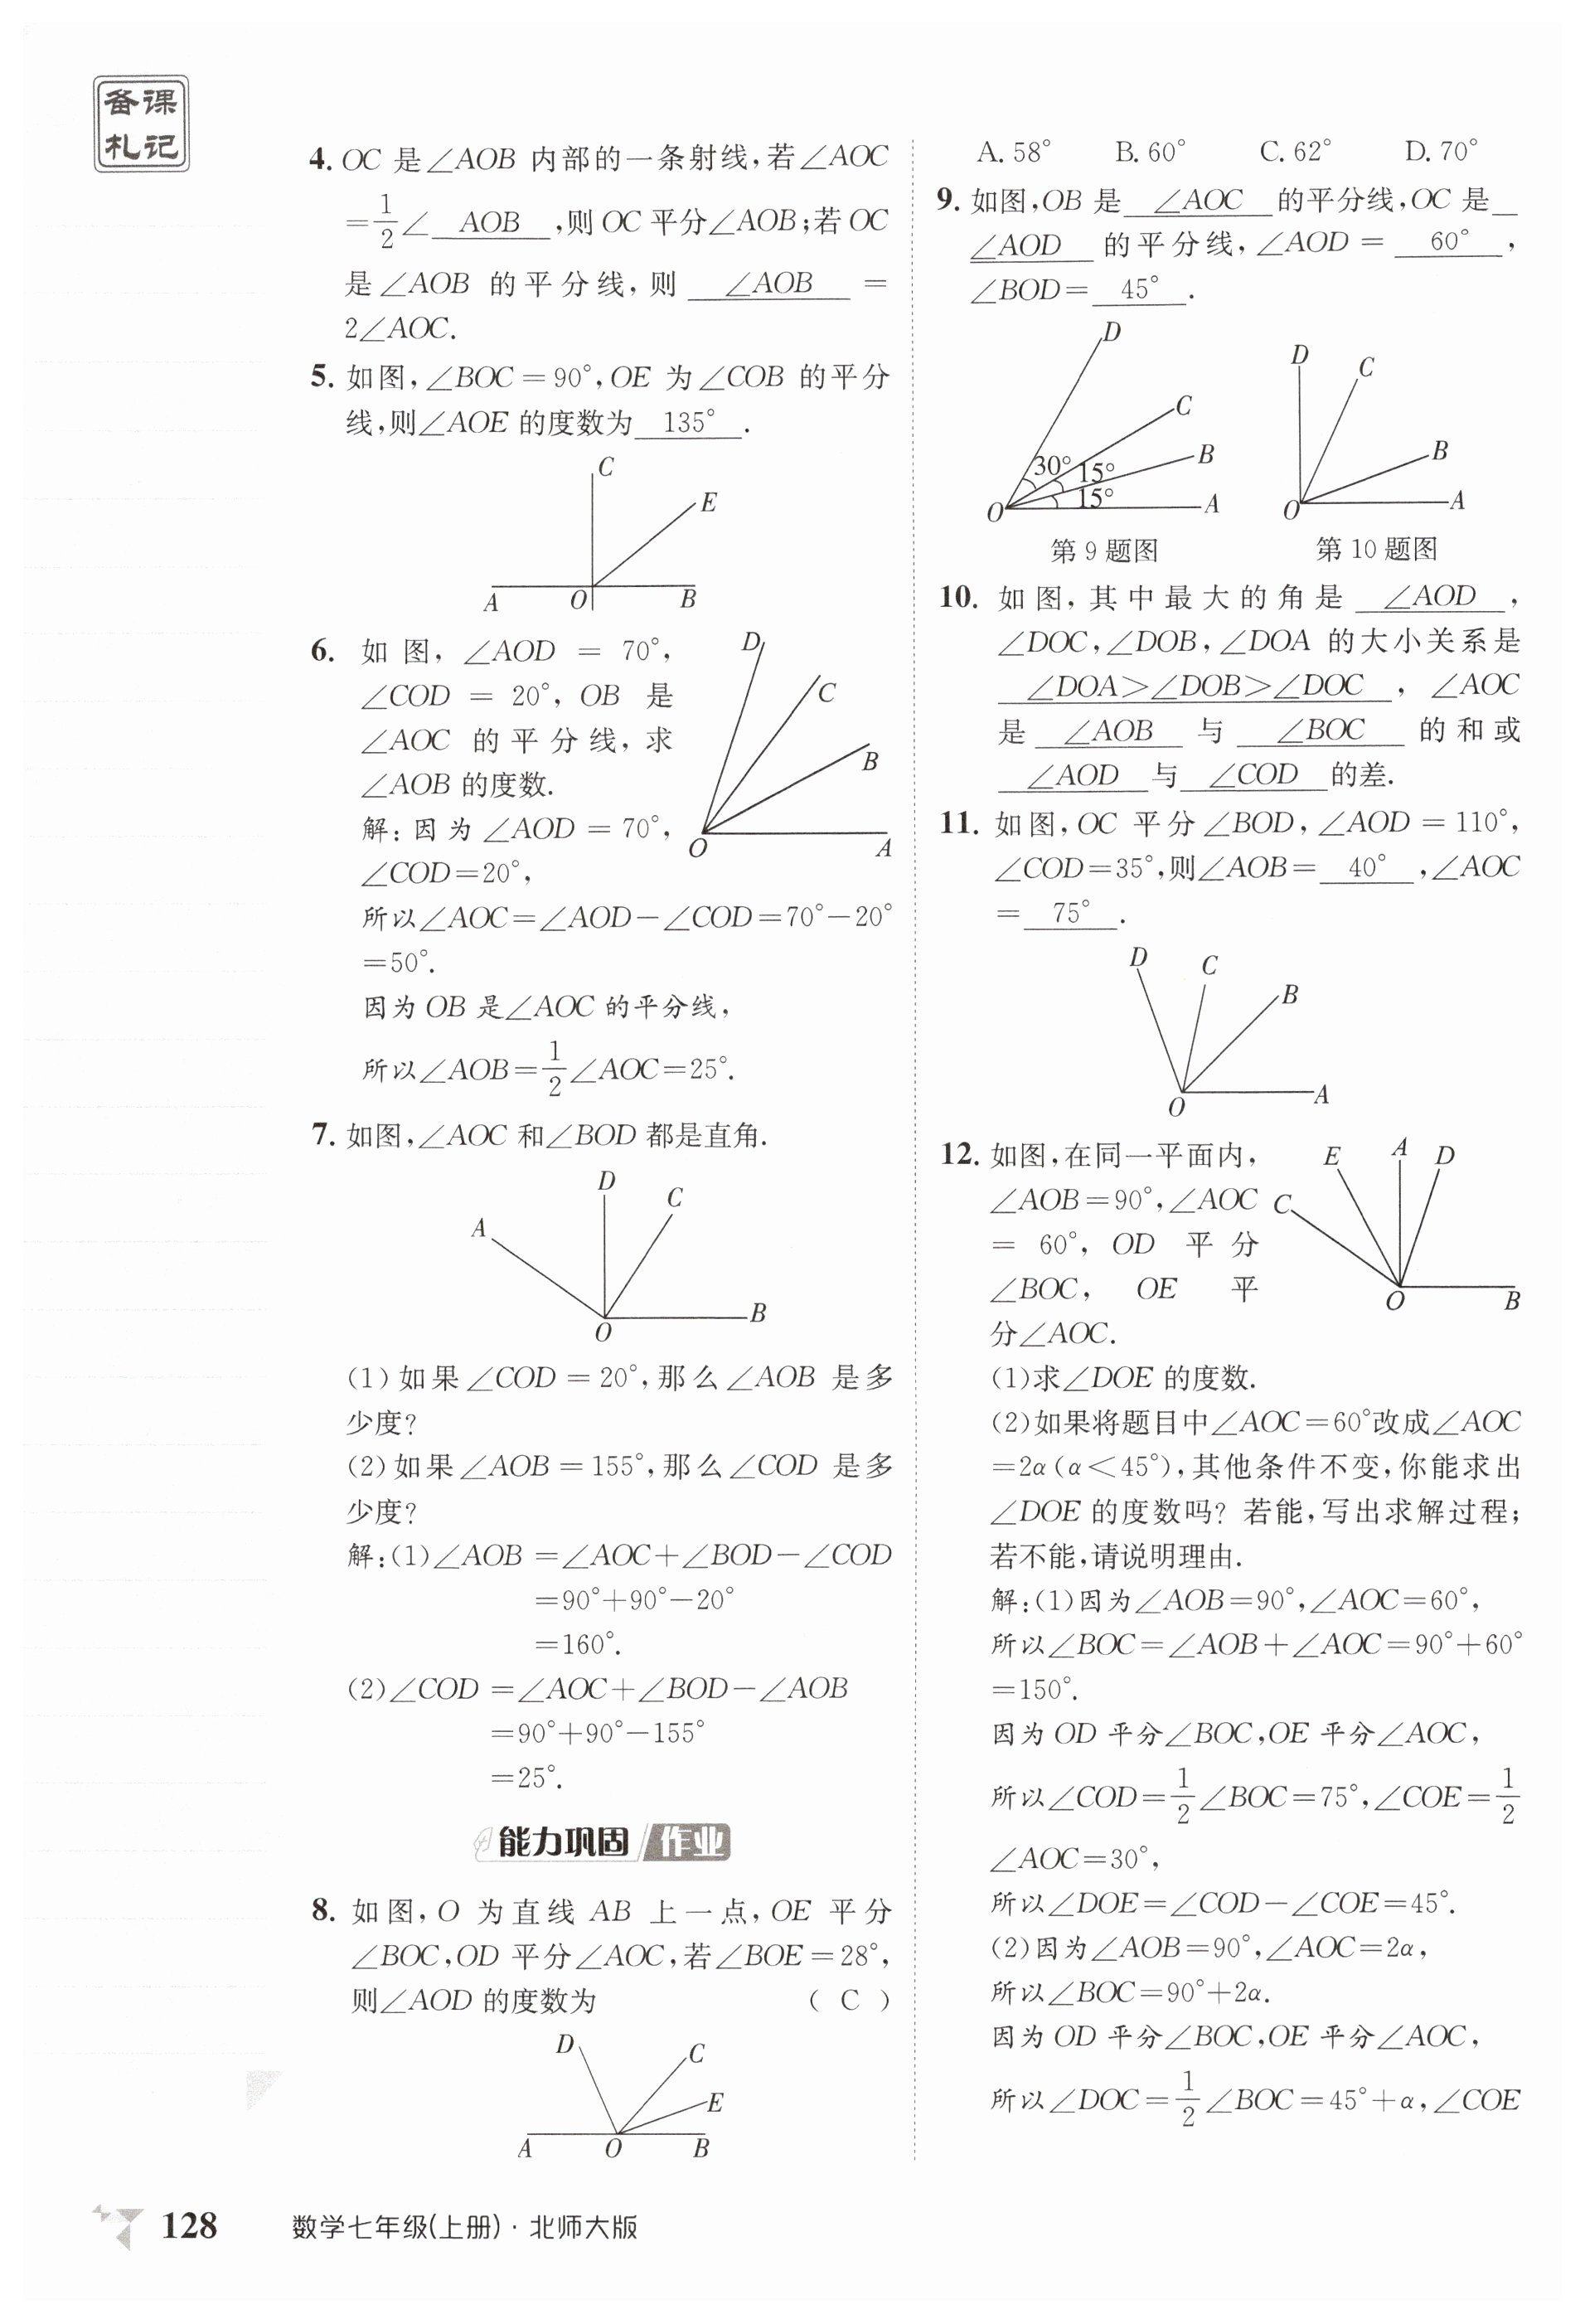 备课
札记
4. OC 是∠AOB 内部的一条射线,若∠AOC
=1/2∠ AOB ,则 OC 平分∠AOB;若 OC
是∠AOB 的平分线,则 ∠AOB =
2∠AOC.
5. 如图,∠BOC=90°,OE 为∠COB 的平分
线,则∠AOE 的度数为 135° .
C
E
A
O
B
6. 如图,∠AOD = 70°,
∠COD = 20°, OB 是
∠AOC 的平分线,求
∠AOB 的度数.
D
C
B
O
A
解:因为∠AOD=70°,
∠COD=20°,
所以∠AOC=∠AOD-∠COD=70°-20°
=50°.
因为 OB 是∠AOC 的平分线,
所以∠AOB=1/2∠AOC=25°.
7. 如图,∠AOC 和∠BOD 都是直角.
D
C
A
B
O
(1)如果∠COD=20°,那么∠AOB 是多
少度?
(2)如果∠AOB=155°,那么∠COD 是多
少度?
解:(1)∠AOB =∠AOC+∠BOD-∠COD
=90°+90°-20°
=160°.
(2)∠COD =∠AOC+∠BOD-∠AOB
=90°+90°-155°
=25°.
能力巩固 作业
8. 如图,O 为直线 AB 上一点,OE 平分
∠BOC,OD 平分∠AOC,若∠BOE=28°,
则∠AOD 的度数为 ( C )
D
C
E
A
O
B
A. 58° B. 60° C. 62° D. 70°
9. 如图,OB 是 ∠AOC 的平分线,OC 是
∠AOD 的平分线,∠AOD = 60° ,
∠BOD= 45° .
D
C
B
30°
15°
15°
O
A
第 9 题图
D
C
B
O
A
第 10 题图
10. 如图,其中最大的角是 ∠AOD ,
∠DOC,∠DOB,∠DOA 的大小关系是
∠DOA>∠DOB>∠DOC , ∠AOC
是 ∠AOB 与 ∠BOC 的和或
∠AOD 与 ∠COD 的差.
11. 如图,OC 平分∠BOD,∠AOD=110°,
∠COD=35°,则∠AOB= 40° ,∠AOC
= 75° .
D
C
B
O
A
12. 如图,在同一平面内,
∠AOB=90°,∠AOC
= 60°, OD 平分
∠BOC, OE 平
分∠AOC.
E
A
D
C
O
B
(1)求∠DOE 的度数.
(2)如果将题目中∠AOC=60°改成∠AOC
=2α(α<45°),其他条件不变,你能求出
∠DOE 的度数吗? 若能,写出求解过程;
若不能,请说明理由.
解:(1)因为∠AOB=90°,∠AOC=60°,
所以∠BOC=∠AOB+∠AOC=90°+60°
=150°.
因为 OD 平分∠BOC,OE 平分∠AOC,
所以∠COD=1/2∠BOC=75°,∠COE=1/2
∠AOC=30°,
所以∠DOE=∠COD-∠COE=45°.
(2)因为∠AOB=90°,∠AOC=2α,
所以∠BOC=90°+2α.
因为 OD 平分∠BOC,OE 平分∠AOC,
所以∠DOC=1/2∠BOC=45°+α,∠COE
128 数学七年级(上册)·北师大版